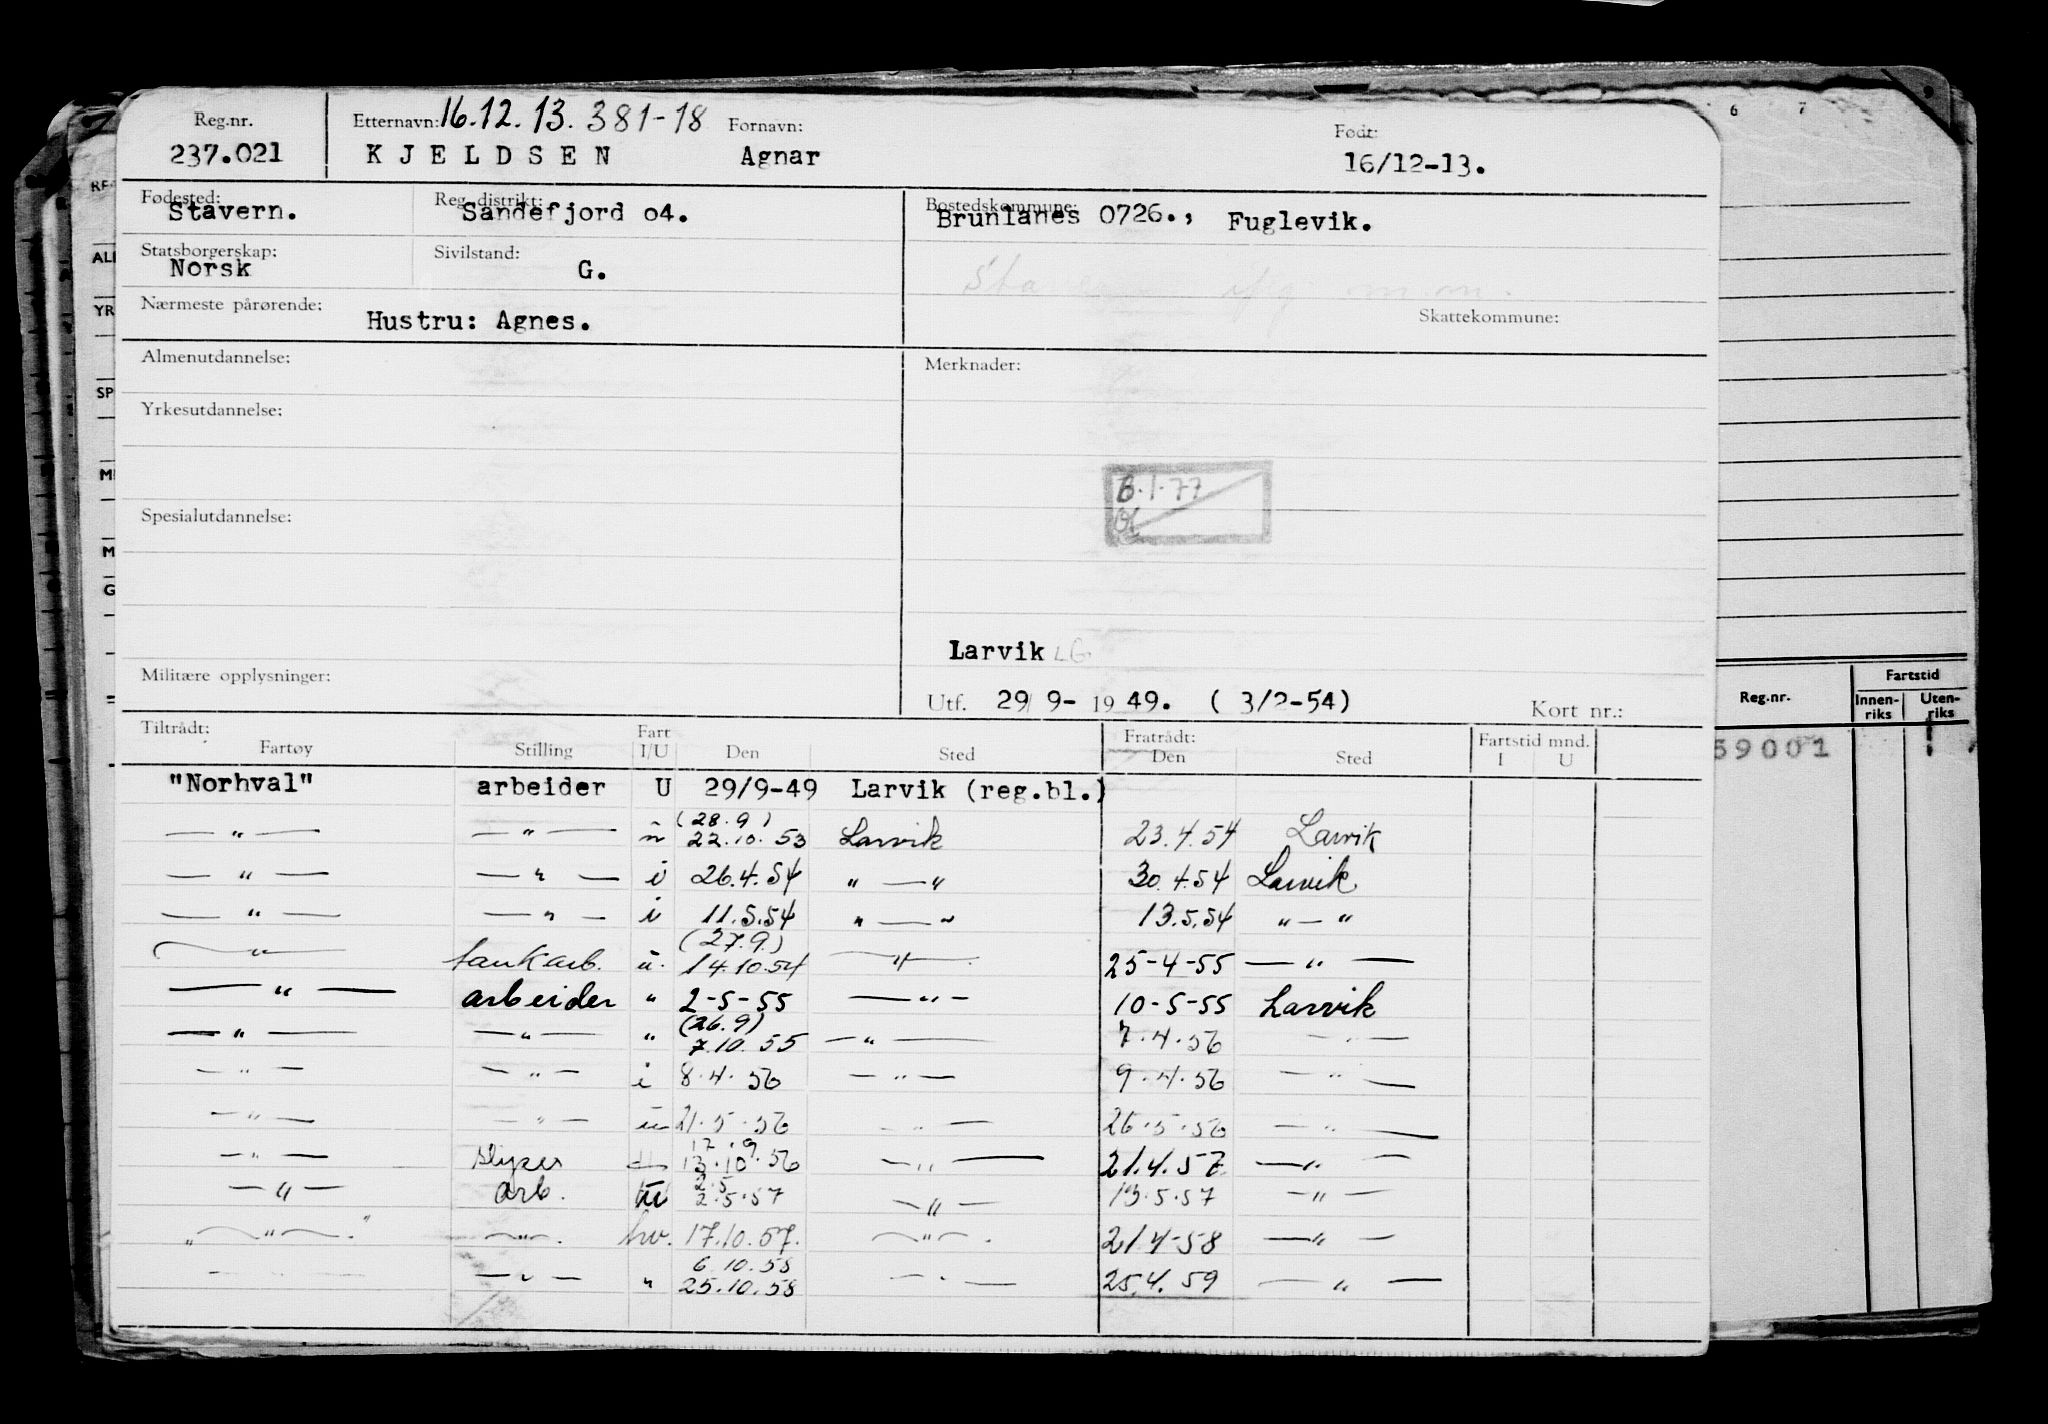 6 7
Reg.nr. Etternavn: 16.12.13. 381-18 Fornavn: Født:
237.021 KJELDSEN Agnar 16/12-13.
Fødested: Reg. distrikt: Bostedskommune:
Stavern. Sandefjord o4. Brunlanes 0726., Fuglevik.
Statsborgerskap: Sivilstand:
Norsk G.
Nærmeste pårørende: Skattekommune:
Hustru: Agnes.
Almenutdannelse: Merknader:
Yrkesutdannelse:
6.1.77
Spesialutdannelse:
Larvik LG
Militære opplysninger:
Utf. 29/ 9- 1949. ( 3/2-54) Kort nr.:
Reg.nr. Fartstid
Innen-riks Uten-riks
59001 1
Tiltrådt: Fart Fratrådt: Fartstid mnd.
Fartøy Stilling I/U Den Sted Den Sted I U
"Norhval" arbeider U 29/9-49 Larvik (reg.bl.)
(28.9)
— " — — " — u 22.10.53 Larvik 23.4.54 Larvik
— " — — " — i 26.4.54 " — " 30.4.54 Larvik
— " — — " — i 11.5.54 " — " 13.5.54 " — "
(27.9.)
— " — tankarb. u. 14.10.54 — " — 25-4-55 — " —
— " — arbeider " 2-5-55 — " — 10-5-55 Larvik
(26.9)
— " — — " — " 7.10.55 — " — 7.4.56 — " —
— " — — " — i 8.4.56 — " — 9.4.56 — " —
— " — — " — u 21.5.56 — " — 26.5.56 — " —
17.9.
— " — slyser 13.10.56 — " — 21.4.57 — " —
2.5
— " — arb. 2.5.57 — " — 13.5.57 — " —
— " — — " — hv. 17.10.57. — " — 21.4-58 — " —
6.10.58
— " — — " — " 25.10.58 — " — 25.4.59 — " —